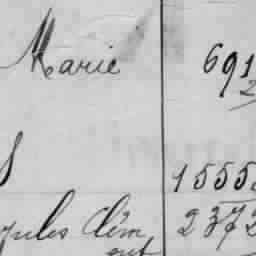 Marie 691
2
1555
Jules Clém 2372
ent